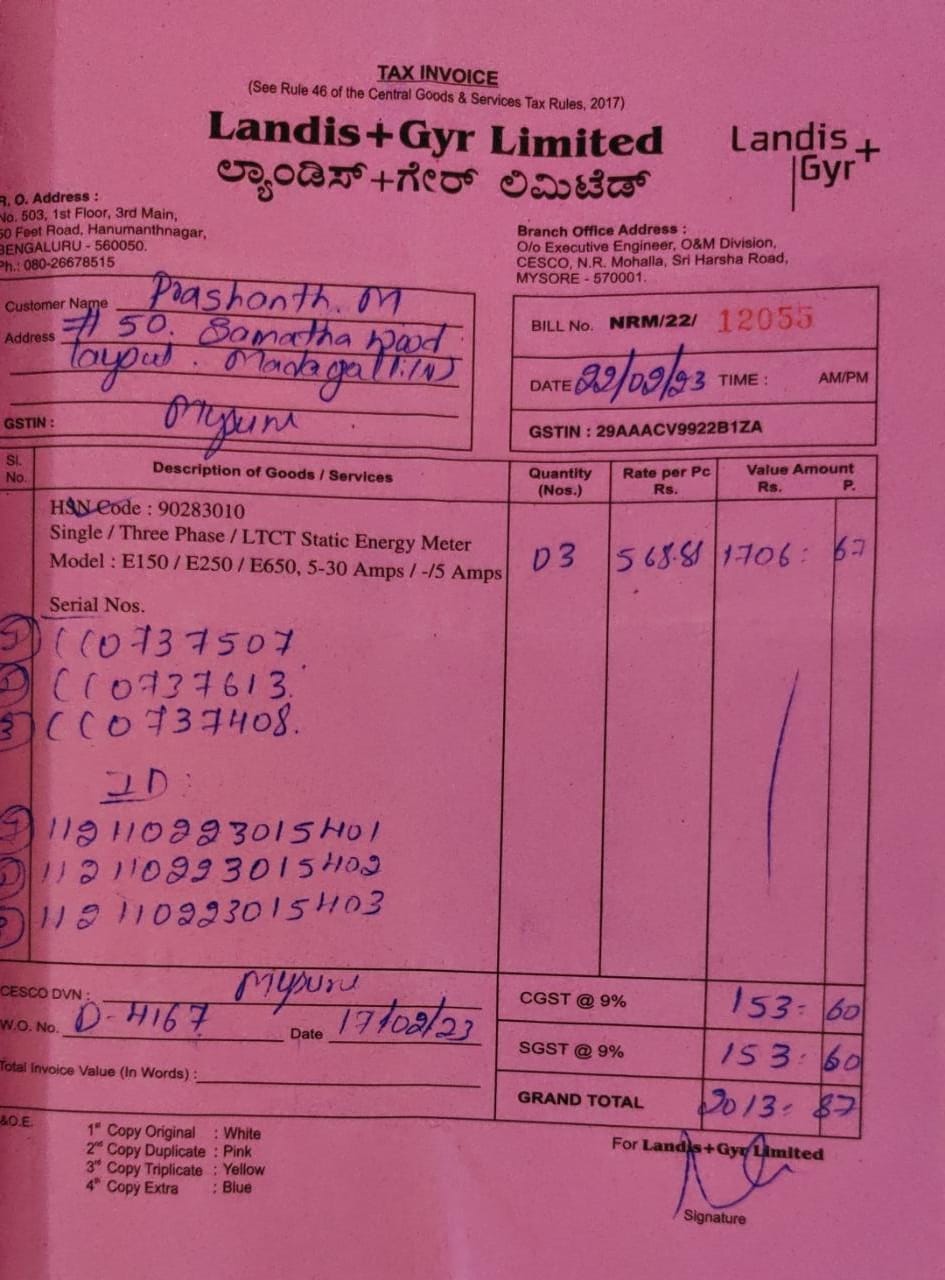 TAX INVOICE
(See Rule 46 of the Central Goods & Services Tax Rules, 2017)
Landis+Gyr Limited
ಲ್ಯಾಂಡಿಸ್+ಗೇರ್ ಲಿಮಿಟೆಡ್
Landis
Gyr+
R. O. Address :
No. 503, 1st Floor, 3rd Main,
50 Feet Road, Hanumanthnagar,
BENGALURU - 560050.
Ph.: 080-26678515
Branch Office Address :
O/o Executive Engineer, O&M Division,
CESCO, N.R. Mohalla, Sri Harsha Road,
MYSORE - 570001.
Customer Name Prashanth. M
Address # 50. Samatha
GSTIN :
BILL No. NRM/22/ 12055
DATE 22/02/23 TIME : AM/PM
GSTIN : 29AAACV9922B1ZA
Sl. No. Description of Goods / Services Quantity (Nos.) Rate per Pc Rs. Value Amount Rs. P.
HSN Code : 90283010
Single / Three Phase / LTCT Static Energy Meter
Model : E150 / E250 / E650, 5-30 Amps / -/5 Amps 03 568.81 1706: 67
Serial Nos.
1 CC0737507
2 CC0737613.
3 CC0737408.
ID:
1 112110223015401
2 112110223015402
3 112110223015403
CESCO DVN :
W.O. No. D-4167 Date 17/02/23
Total Invoice Value (In Words) :
CGST @ 9% 153- 60
SGST @ 9% 153: 60
GRAND TOTAL 2013: 87
&O.E.
1st Copy Original : White
2nd Copy Duplicate : Pink
3rd Copy Triplicate : Yellow
4th Copy Extra : Blue
For Landis+Gyr Limited
Signature